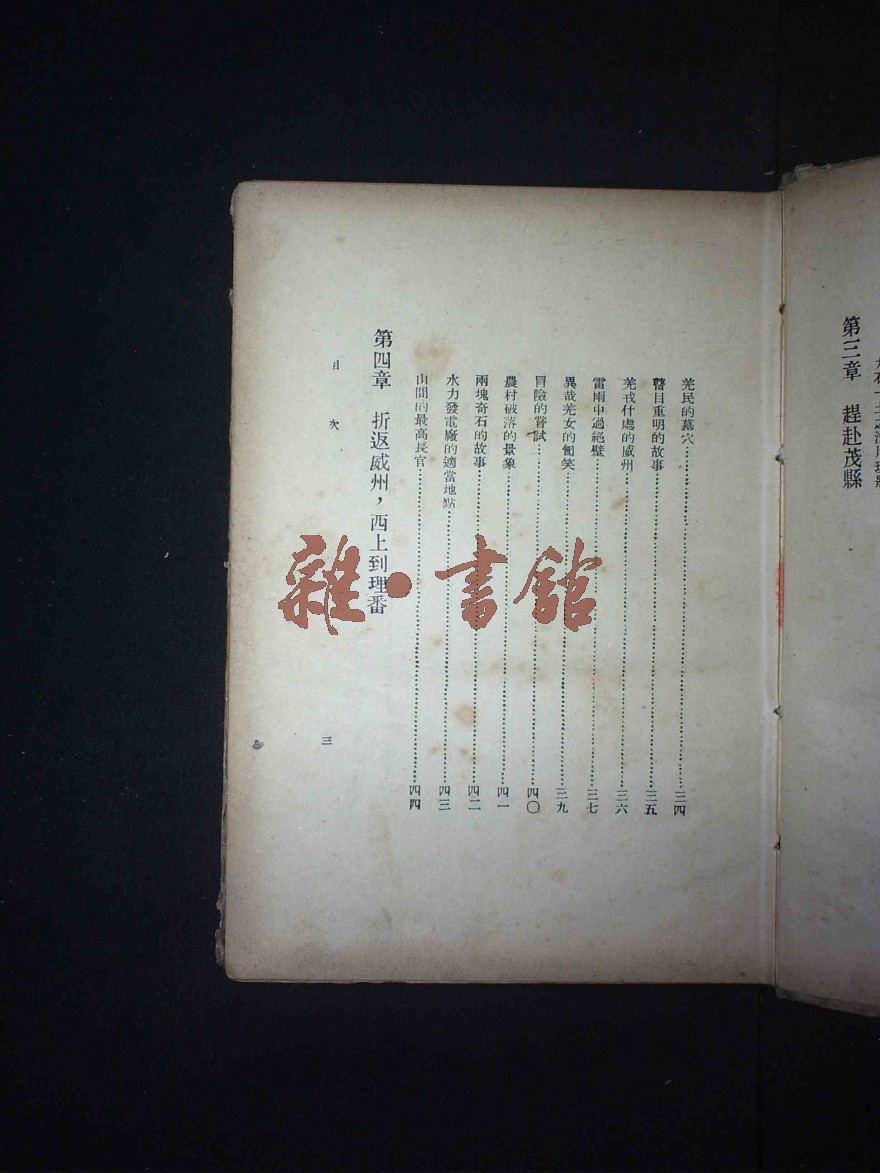 第三章　趕赴茂縣
羌民的墓穴……三四
瞽目重明的故事……三五
羌戎什處的威州……三六
雷雨中過絕壁……三七
異哉羌女的匍笑……三九
冒險的嘗試……四〇
農村破落的景象……四一
兩塊奇石的故事……四二
水力發電廠的適當地點……四三
山間的最高長官……四四
第四章　折返威州，西上到理番
目次
三
雜·書館